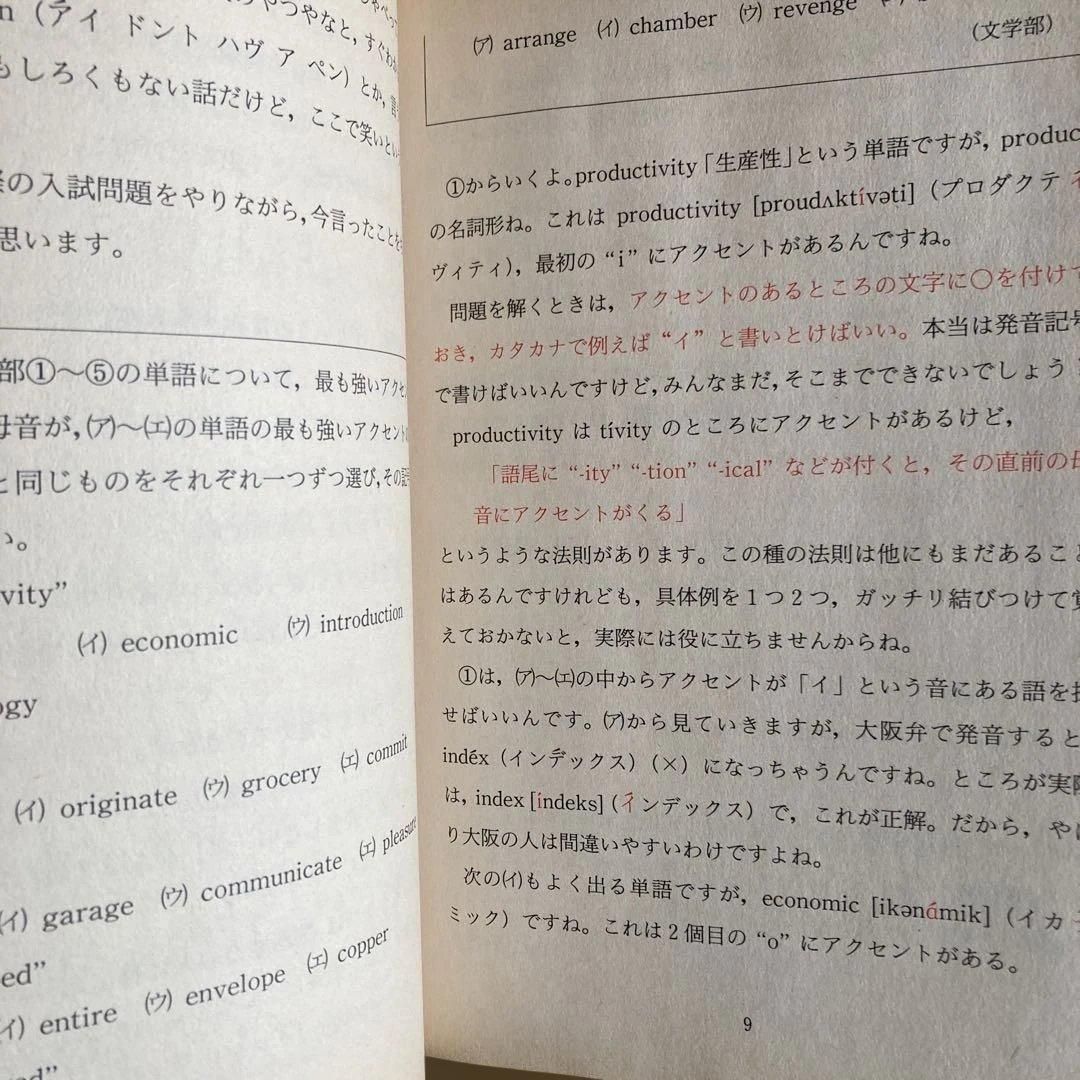 n (アイ ドント ハヴ ア ペン) とか,
もしろくもない話だけど, ここで笑いとい
の入試問題をやりながら, 今言ったことを
思います。
部①〜⑤の単語について, 最も強いアクセ
母音が, ㋐〜㋓の単語の最も強いアクセント
と同じものをそれぞれ一つずつ選び, その記号
い。
vity”
(イ) economic (ウ) introduction
ogy
(イ) originate (ウ) grocery (エ) commit
(イ) garage (ウ) communicate (エ) pleasure
ed”
(イ) entire (ウ) envelope (エ) copper
(ア) arrange (イ) chamber (ウ) revenge
(文学部)
①からいくよ。productivity「生産性」という単語ですが, produc
の名詞形ね。これは productivity [proudʌktívəti] (プロダクテ
ヴィティ), 最初の “i” にアクセントがあるんですね。
問題を解くときは, アクセントのあるところの文字に○を付けて
おき, カタカナで例えば “イ” と書いとけばいい。本当は発音記号
で書けばいいんですけど, みんなまだ, そこまでできないでしょう?
productivity は tívity のところにアクセントがあるけど,
「語尾に “-ity” “-tion” “-ical” などが付くと, その直前の母
音にアクセントがくる」
というような法則があります。この種の法則は他にもまだあること
はあるんですけれども, 具体例を1つ2つ, ガッチリ結びつけて覚
えておかないと, 実際には役に立ちませんからね。
①は, (ア)〜(エ)の中からアクセントが「イ」という音にある語を探
せばいいんです。(ア)から見ていきますが, 大阪弁で発音すると
indéx (インデックス) (×) になっちゃうんですね。ところが実際
は, index [índeks] (インデックス) で, これが正解。だから, やは
り大阪の人は間違いやすいわけですよね。
次の(イ)もよく出る単語ですが, economic [ikənámik] (イカナ
ミック) ですね。これは2個目の “o” にアクセントがある。
9